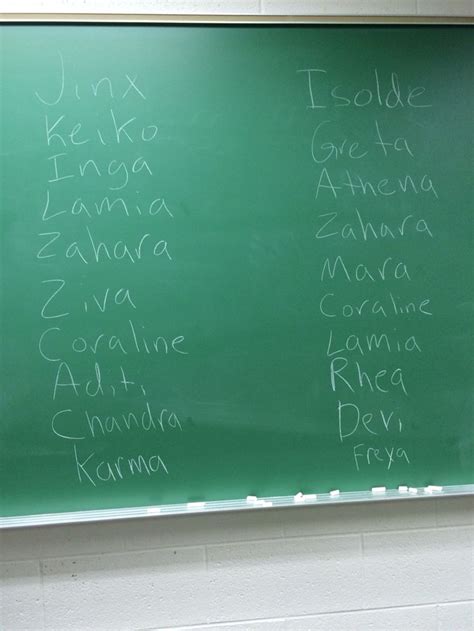 Jinx
Keiko
Inga
Lamia
Zahara
Ziva
Coraline
Aditi
Chandra
Karma
Isolde
Greta
Athena
Zahara
Mara
Coraline
Lamia
Rhea
Devi
Freya